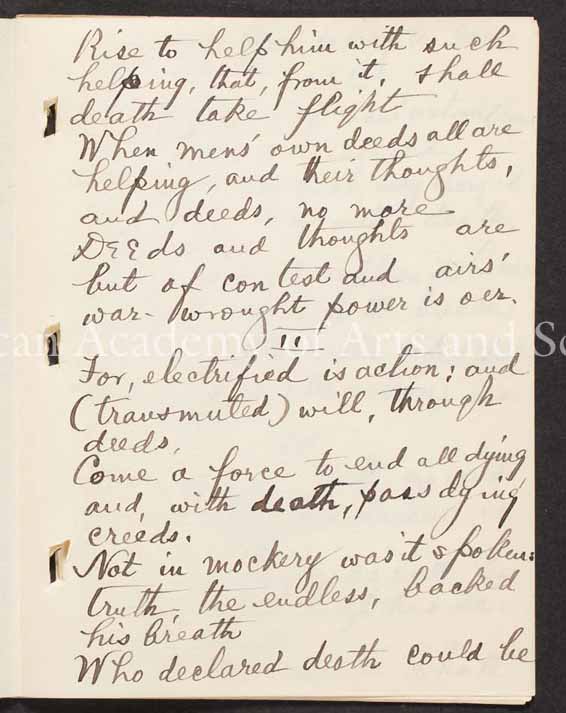 Rise to help him with such
helping, that, from it, shall
death take flight
When mens' own deeds all are
helping, and their thoughts,
and deeds, no more
Deeds and thoughts are
but of contest and airs'
war-wrought power is oer.
II
can Academy of Arts and Sc
For, electrified is action; and
(transmuted) will, through
deeds,
Come a force to end all dying
and, with death, pass dying
creeds.
Not in mockery was't spoken:
truth, the endless, backed
his breath
Who declared death could be